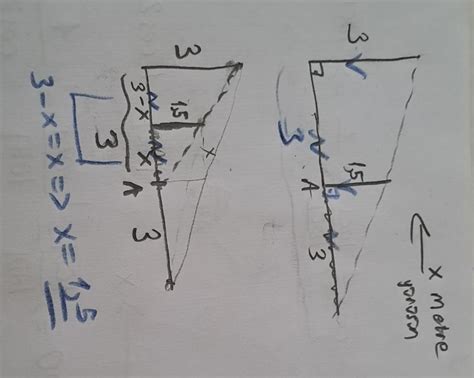 x metre
3 1,5
3 A 3
3 1,5 x
3-x x A 3
3
3-x=x=> x=1,5